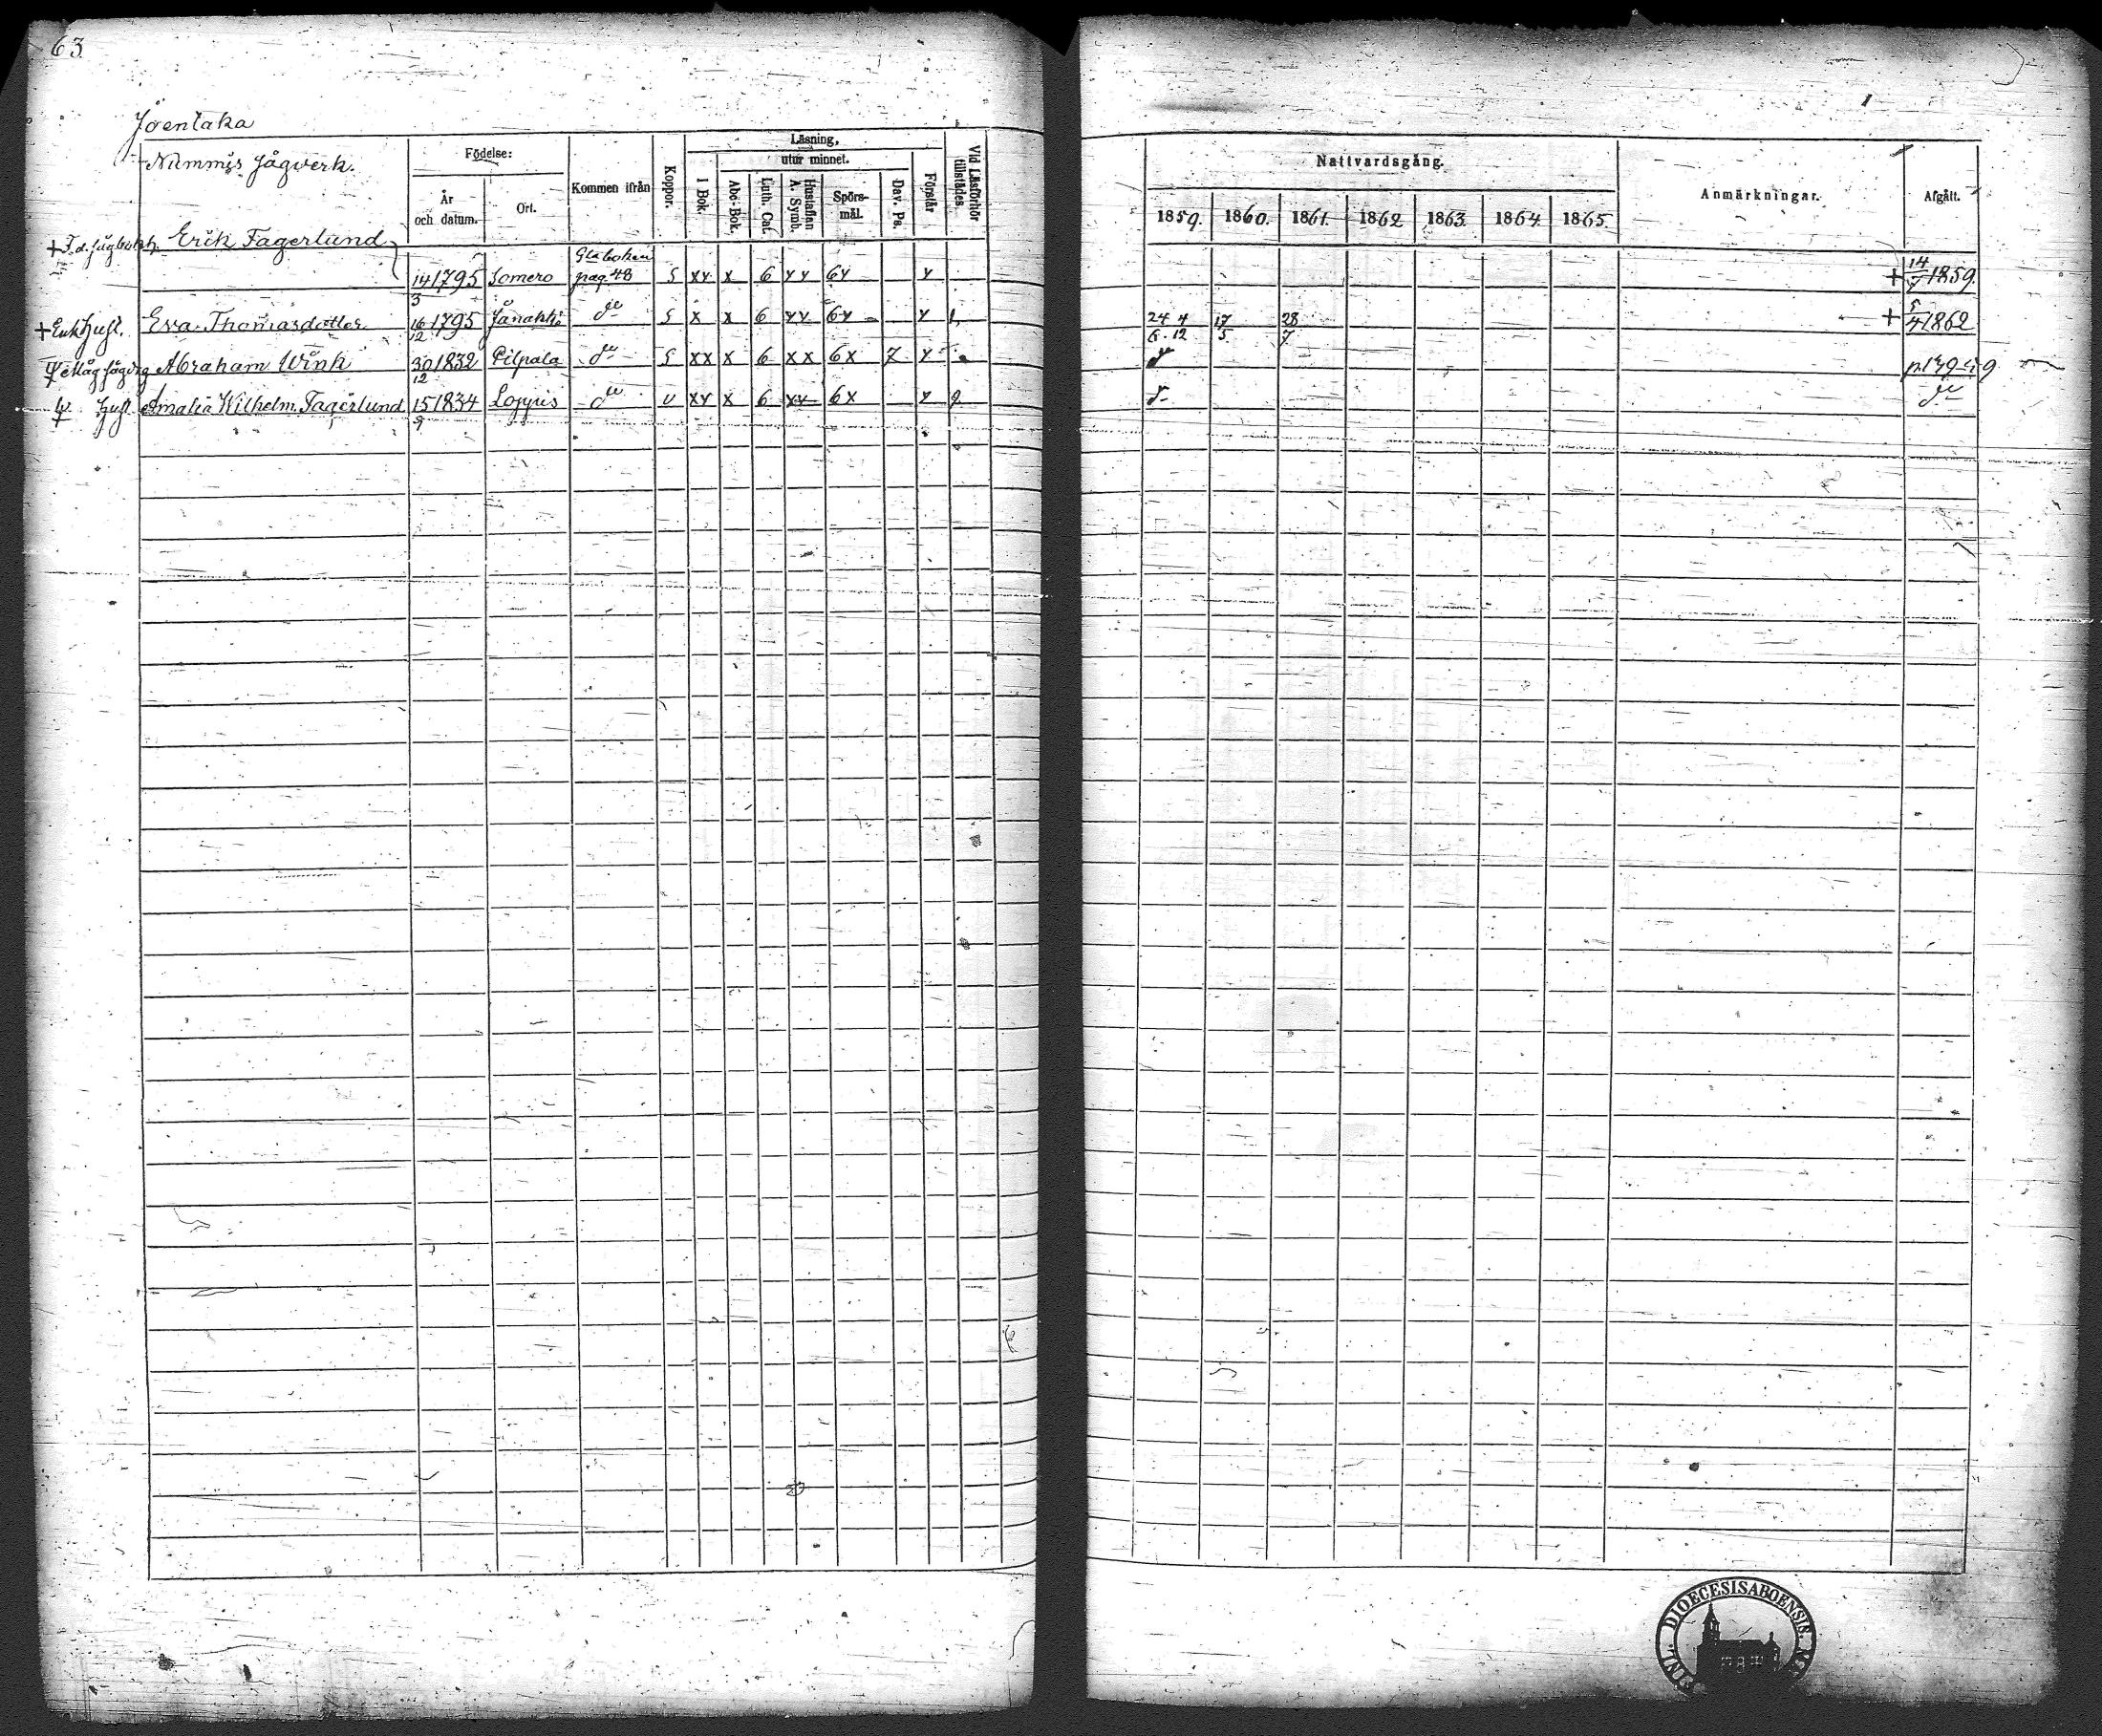 63
Joentaka
Nummis sågverk.
Födelse:
År och datum.
Ort.
Kommen ifrån
Koppor.
Läsning,
I Bok.
utur minnet.
Abc-Bok.
Luth. Cat.
Hustaflan A. Symb.
Spörs-mål.
Dav. Ps.
Förstår
Vid Läsförhör tillstädes.
Nattvardsgång.
1859. 1860. 1861. 1862 1863. 1864. 1865.
Anmärkningar.
Afgått.
+ F.d. sågbokh. Erik Fagerlund
14/3 1795 Somero Gla boken pag. 48 S xx x 6 xx 6x x + 14/7 1859.
+ Enk Hust. Eva Thomasdotter 16/12 1795 Janakk. do S x x 6 xx 6x x 1, 24/6 . 4/12 17/5 28/7 + 5/4 1862
Måg Abraham Wink 30/12 1832 Pilpala do S xx x 6 xx 6x 7 x
Hust. Amalia Wilhelm. Fagerlund 15/9 1834 Loppis do v xx x 6 xx 6x x do
DIOECESIS ABOENSIS.